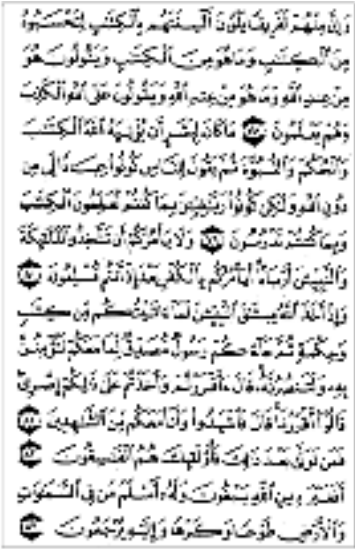 وَإِنَّ مِنْهُمْ لَفَرِيقًا يَلْوُۥنَ أَلْسِنَتَهُم بِٱلْكِتَٰبِ لِتَحْسَبُوهُ
مِنَ ٱلْكِتَٰبِ وَمَا هُوَ مِنَ ٱلْكِتَٰبِ وَيَقُولُونَ هُوَ
مِنْ عِندِ ٱللَّهِ وَمَا هُوَ مِنْ عِندِ ٱللَّهِ وَيَقُولُونَ عَلَى ٱللَّهِ ٱلْكَذِبَ
وَهُمْ يَعْلَمُونَ مَا كَانَ لِبَشَرٍ أَن يُؤْتِيَهُ ٱللَّهُ ٱلْكِتَٰبَ
وَٱلْحُكْمَ وَٱلنُّبُوَّةَ ثُمَّ يَقُولَ لِلنَّاسِ كُونُوا۟ عِبَادًا لِّى مِن
دُونِ ٱللَّهِ وَلَٰكِن كُونُوا۟ رَبَّٰنِيِّۦنَ بِمَا كُنتُمْ تُعَلِّمُونَ ٱلْكِتَٰبَ
وَبِمَا كُنتُمْ تَدْرُسُونَ وَلَا يَأْمُرَكُمْ أَن تَتَّخِذُوا۟ ٱلْمَلَٰٓئِكَةَ
وَٱلنَّبِيِّۦنَ أَرْبَابًا أَيَأْمُرُكُم بِٱلْكُفْرِ بَعْدَ إِذْ أَنتُم مُّسْلِمُونَ
وَإِذْ أَخَذَ ٱللَّهُ مِيثَٰقَ ٱلنَّبِيِّۦنَ لَمَآ ءَاتَيْتُكُم مِّن كِتَٰبٍ
وَحِكْمَةٍ ثُمَّ جَآءَكُمْ رَسُولٌ مُّصَدِّقٌ لِّمَا مَعَكُمْ لَتُؤْمِنُنَّ
بِهِۦ وَلَتَنصُرُنَّهُۥ قَالَ ءَأَقْرَرْتُمْ وَأَخَذْتُمْ عَلَىٰ ذَٰلِكُمْ إِصْرِى
قَالُوٓا۟ أَقْرَرْنَا قَالَ فَٱشْهَدُوا۟ وَأَنَا۠ مَعَكُم مِّنَ ٱلشَّٰهِدِينَ
فَمَن تَوَلَّىٰ بَعْدَ ذَٰلِكَ فَأُو۟لَٰٓئِكَ هُمُ ٱلْفَٰسِقُونَ
أَفَغَيْرَ دِينِ ٱللَّهِ يَبْغُونَ وَلَهُۥٓ أَسْلَمَ مَن فِى ٱلسَّمَٰوَٰتِ
وَٱلْأَرْضِ طَوْعًا وَكَرْهًا وَإِلَيْهِ يُرْجَعُونَ